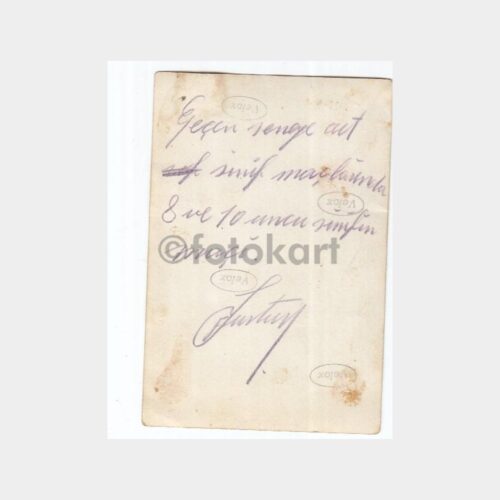 Velox
Geçen seneye ait
sınıf maçlarında
Velox
8 ve 10 uncu sınıfın
©fotokart
Velox
Velox